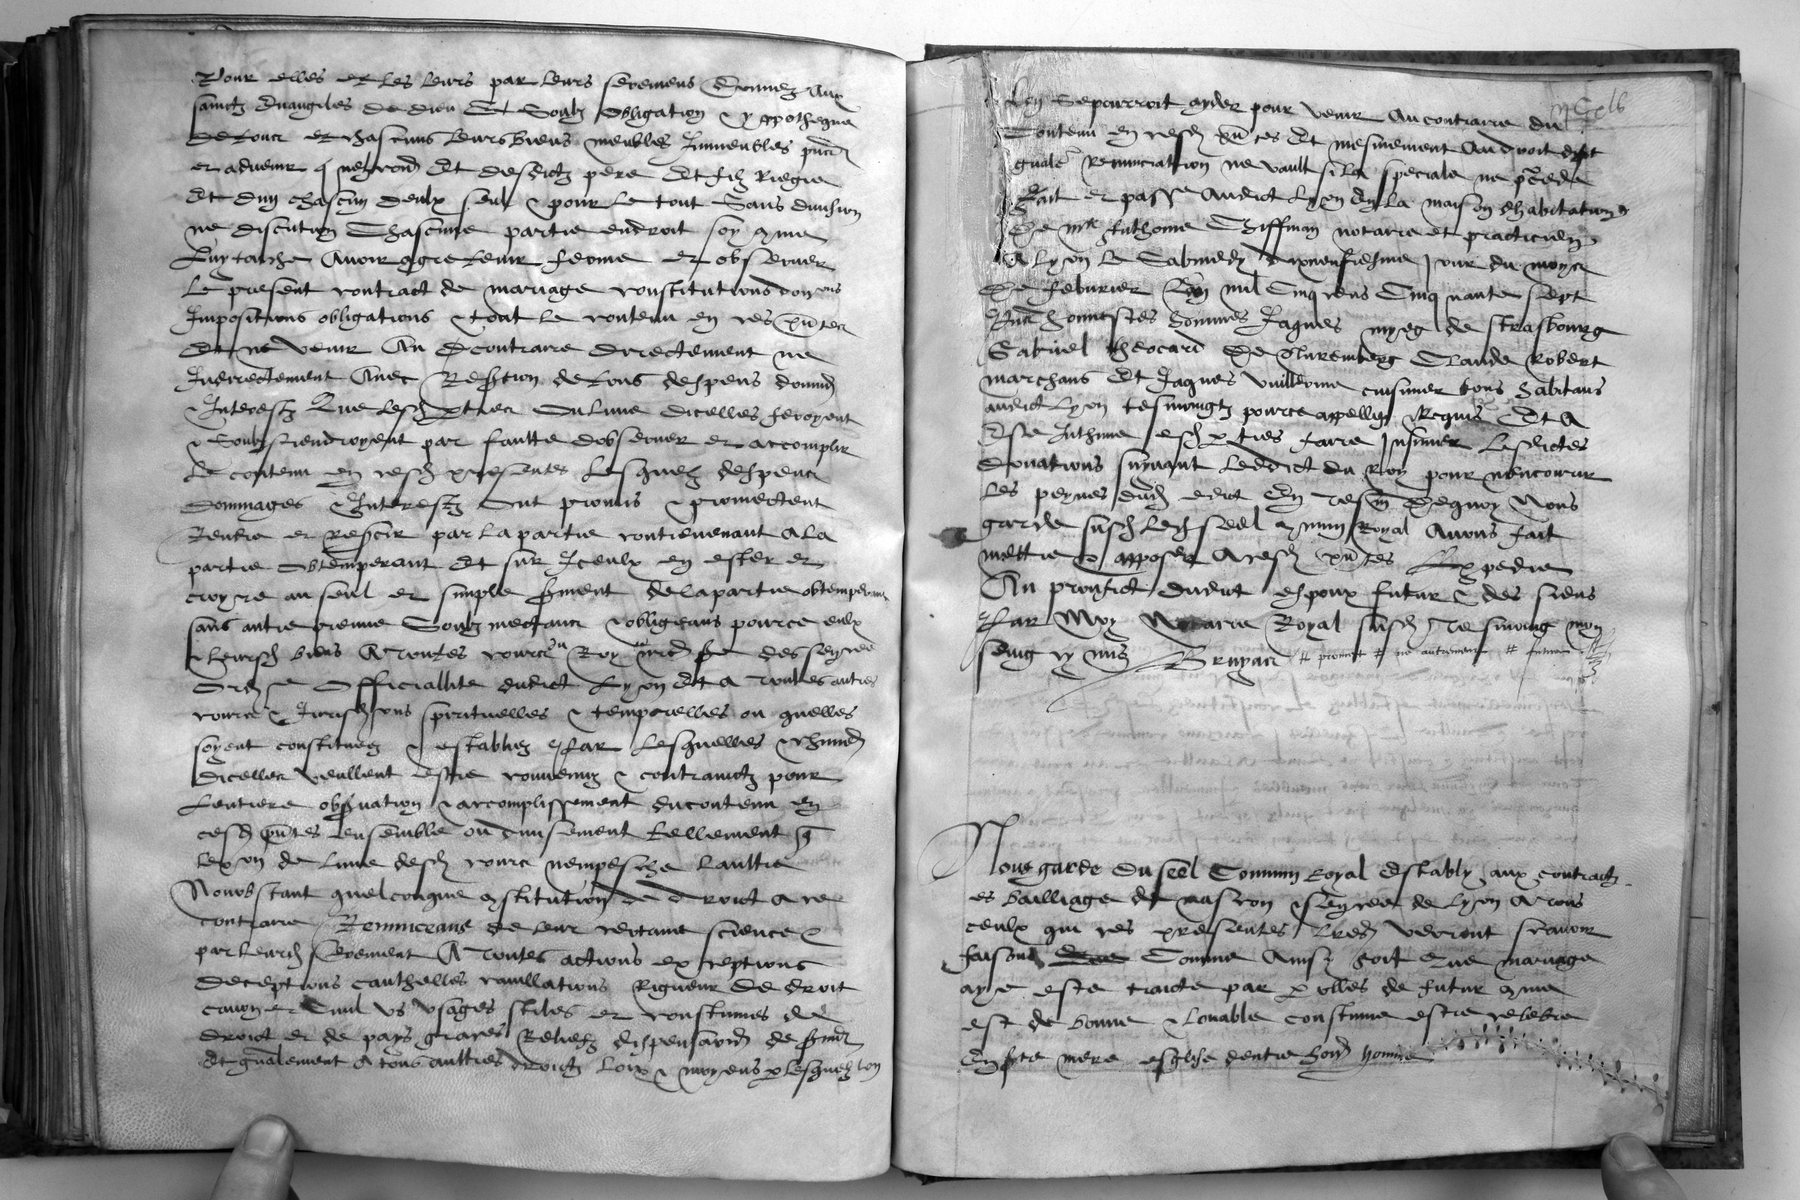 Pour elles et les leurs par leurs seremens donnez aux
sainctz Evangiles de dieu Et soubz obligation & yppothegue
de tous et chascuns leurs biens meubles Immeubles pntz
et advenir q Et desdictz pere Et filz Riegie
Et dun chascun deulx seul & pour le tout Sans division
ne discution Chascune partie endroit soy come
luy touche Avoir agre tenir ferme et observer
Le present contract de mariage constitutions donons
Impositions obligations & tout le contenu en ces pntes
Et ne venir Au Contraire directement ne
Indirectement Avec Reffction de tous despens dommz
& Interestz Que lesd pties ou lune dicelles feroyent
& Soubstiendroyent par faulte dobserver et accomplir
Le contenu en cesd presentes Lesquelz despens
dommages & Interestz Ont promis & promectent
Rendre et Reffcir par la partie contrevenant A la
partie obtemperant Et sur Iceulx en ester et
croyre au seul et simple sment de la partie obtemperant
sans autre preuve Soubzmectans & obligeans pource eulx
& leursd biens A toutes cours du Roy nred sr des senynee
Ordre Officiallite dudict Lyon Et a toutes autres
cours & Jurisdons spirituelles & temporelles ou quelles
soyent constituez & establiez Par lesquelles & chune
dicelles veullent estre convenuz & contrainctz pour
Lentiere obsvation & accomplissement du contenu en
cesd pntes ensemble ou divisement tellement q
lexon de lune desd cours nempesche laultre
Nonobstant quelconque constitution de droict a ce
contraire Renonceans de leur certaine science &
par leursd serement A toutes actions exceptions
deceptions cauthelles cavillations Rigueur de droit
canon et Civil us usages stiles et coustumes de
droict et de pays graces Reliefz dispensaons de sment
Et gnalement A tous aultres droictz Loix & moyens p lesquelz lon
Lon se pourroit ayder pour venir Au contraire du
Contenu en cesd pntes Et mesmement Au droit disant
gnale Renunciation ne vault si la speciale ne pcede
Fait et passe Audict Lyon En la maison dhabitation
De me Anthoine Chiffman notaire et practicien
A Lyon Le Sabmedy dixneufiesme Jour du moys
De Febvrier Lan mil Cinq cens Cinquante sept
Pns honnestes hommes Jaques myeg de strasbourg
Gabriel De Nuremberg Claude Robert
marchans Et Jaques Vuillerme cuisinier tous habitans
audict Lyon tesmoingtz pource appellez & Requis Et A
Este Inthime esd pties faire Insinuer Lesdictes
donations suyvant Ledict du Roy pour nencourir
Les peynes dud edict En tesm Dequoy Nous
garde susd led seel comun Royal Avons fait
mettre & apposer A cesd pntes Expedie
Au prouffict dudict espoux futur & des siens
Par Moy Notaire Royal susd Tesmoing mon
seing cy mis Bruyas # promect # ne autrement # futeur
Nous garde du seel Commun Royal Estably aux contractz
es bailliage de mascon & senynee de Lyon A tous
ceulx qui ces presentes Lres verront scavoir
faisons Comme Ainsy soit Que mariage
aye este traicte par polles de futur come
est de bonne & louable coustume estre celebre
En ste mere esglise dentre honn homme